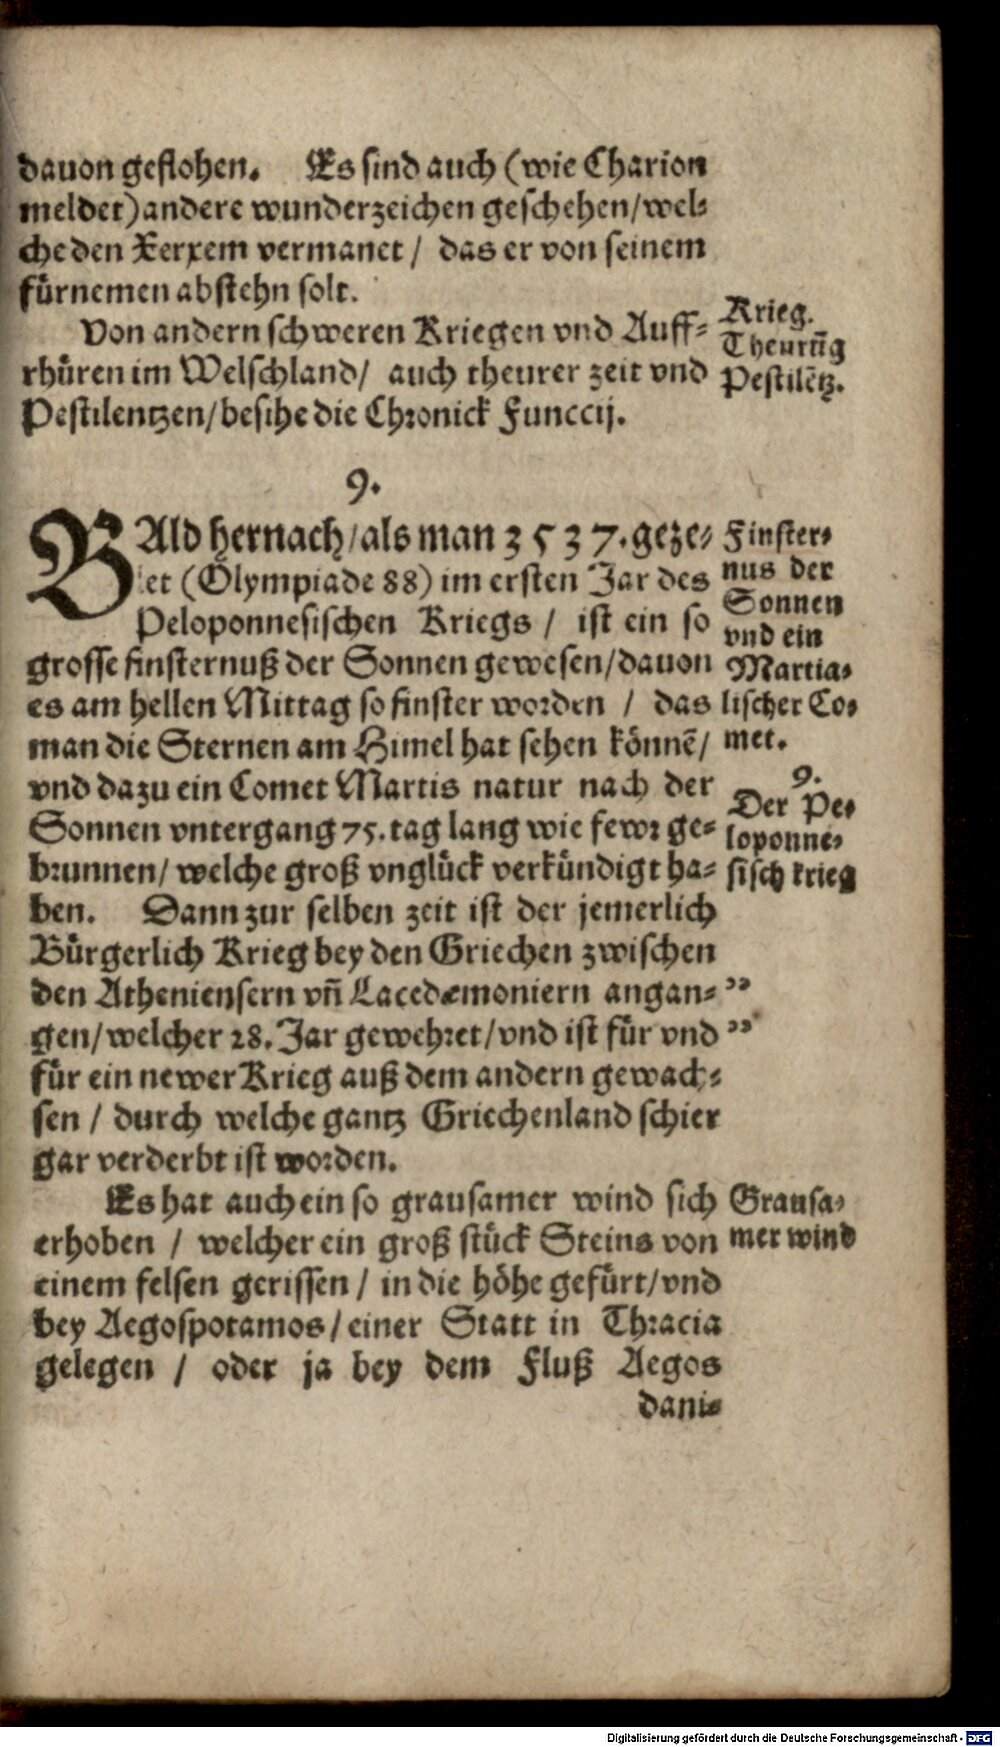 dauon geflohen. Es sind auch (wie Charion
meldet) andere wunderzeichen geschehen/wel-
che den Xerxem vermanet / das er von seinem
fürnemen abstehn solt.
Von andern schweren Kriegen vnd Auff-
rhüren im Welschland/ auch theurer zeit vnd
Pestilentzen/besihe die Chronick Funccij.
Krieg.
Theurūg
Pestilētz.
9.
BAld hernach/als man 3537. geze-
let (Olympiade 88) im ersten Jar des
Peloponnesischen Kriegs / ist ein so
grosse finsternuß der Sonnen gewesen/dauon
es am hellen Mittag so finster worden / das
man die Sternen am Himel hat sehen könnē/
vnd dazu ein Comet Martis natur nach der
Sonnen vntergang 75. tag lang wie fewr ge-
brunnen/ welche groß vnglück verkündigt ha-
ben. Dann zur selben zeit ist der jemerlich
Bürgerlich Krieg bey den Griechen zwischen
den Atheniensern vn̄ Lacedæmoniern angan-
gen/welcher 28. Jar gewehret/vnd ist für vnd
für ein newer Krieg auß dem andern gewach-
sen / durch welche gantz Griechenland schier
gar verderbt ist worden.
Finster-
nus der
Sonnen
vnd ein
Martia-
lischer Co-
met.
9.
Der Pe-
loponne-
sisch krieg
"
"
Es hat auch ein so grausamer wind sich
erhoben / welcher ein groß stück Steins von
einem felsen gerissen / in die höhe gefürt/vnd
bey Aegospotamos/einer Statt in Thracia
gelegen / oder ja bey dem Fluß Aegos
Grausa-
mer wind
dani-
Digitalisierung gefördert durch die Deutsche Forschungsgemeinschaft - DFG